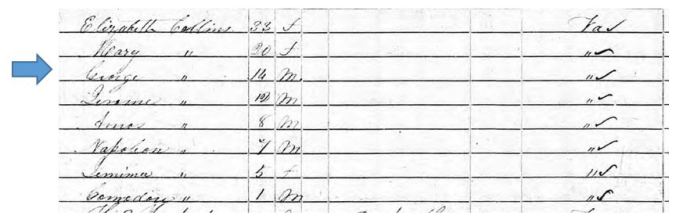 Elizabeth Collins 33 f Va ✓
Mary " 20 f " ✓
George " 14 M " ✓
Jerome " 12 M " ✓
Amos " 8 M " ✓
Napoleon " 7 M " ✓
Jemima " 5 f " ✓
Comodore " 1 M " ✓